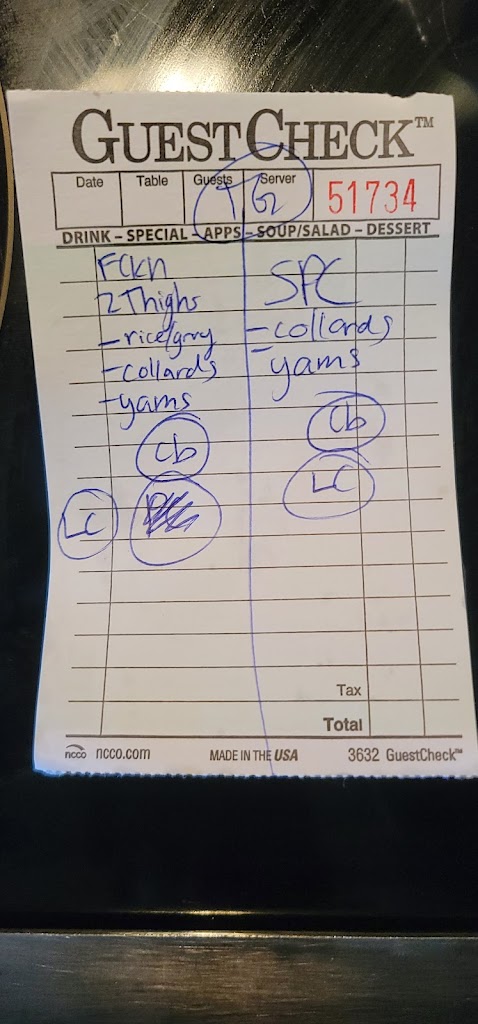 GUESTCHECK™
Date Table Guests Server 51734
DRINK – SPECIAL – APPS – SOUP/SALAD – DESSERT
FCkn
2 Thighs
- rice/grvy
- collards
- yams
cb
LC
SPC
- collards
- yams
cb
LC
Tax
Total
ncco ncco.com MADE IN THE USA 3632 GuestCheck™